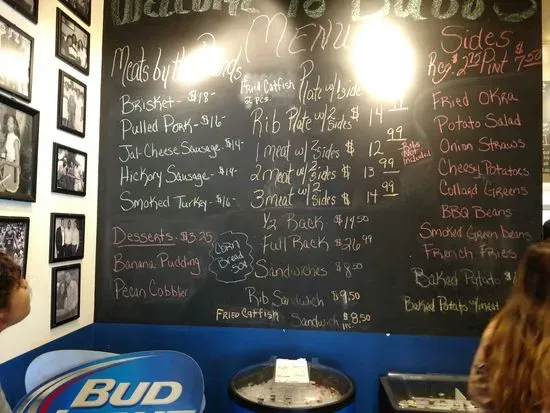 Welcome To Bubba's
MENU
Meats by the Pounds
Brisket - $18-
Pulled Pork - $16-
Jal-Cheese Sausage - $14-
Hickory Sausage - $14-
Smoked Turkey - $16-
Desserts - $3.25
Banana Pudding
Pecan Cobbler
Corn
Bread
50¢
Fried Catfish
2 pcs.
Plate w/ Side
Rib Plate w/ 2 sides $14
1 meat w/ 2 sides $12.99
Ribs
Not
included
2 meat w/ 2 sides $13.99
3 meat w/ 2 sides $14.99
1/2 Rack - $14.50
Full Rack $26.99
Sandwiches $8.50
Rib Sandwich $9.50
Fried Catfish Sandwich $8.50
Sides
Reg. $2.75 Pint $7.50
Fried Okra
Potato Salad
Onion Straws
Cheesy Potatoes
Collard Greens
BBQ Beans
Smoked Green beans
French Fries
Baked Potato $
Baked Potato w/meat
BUD